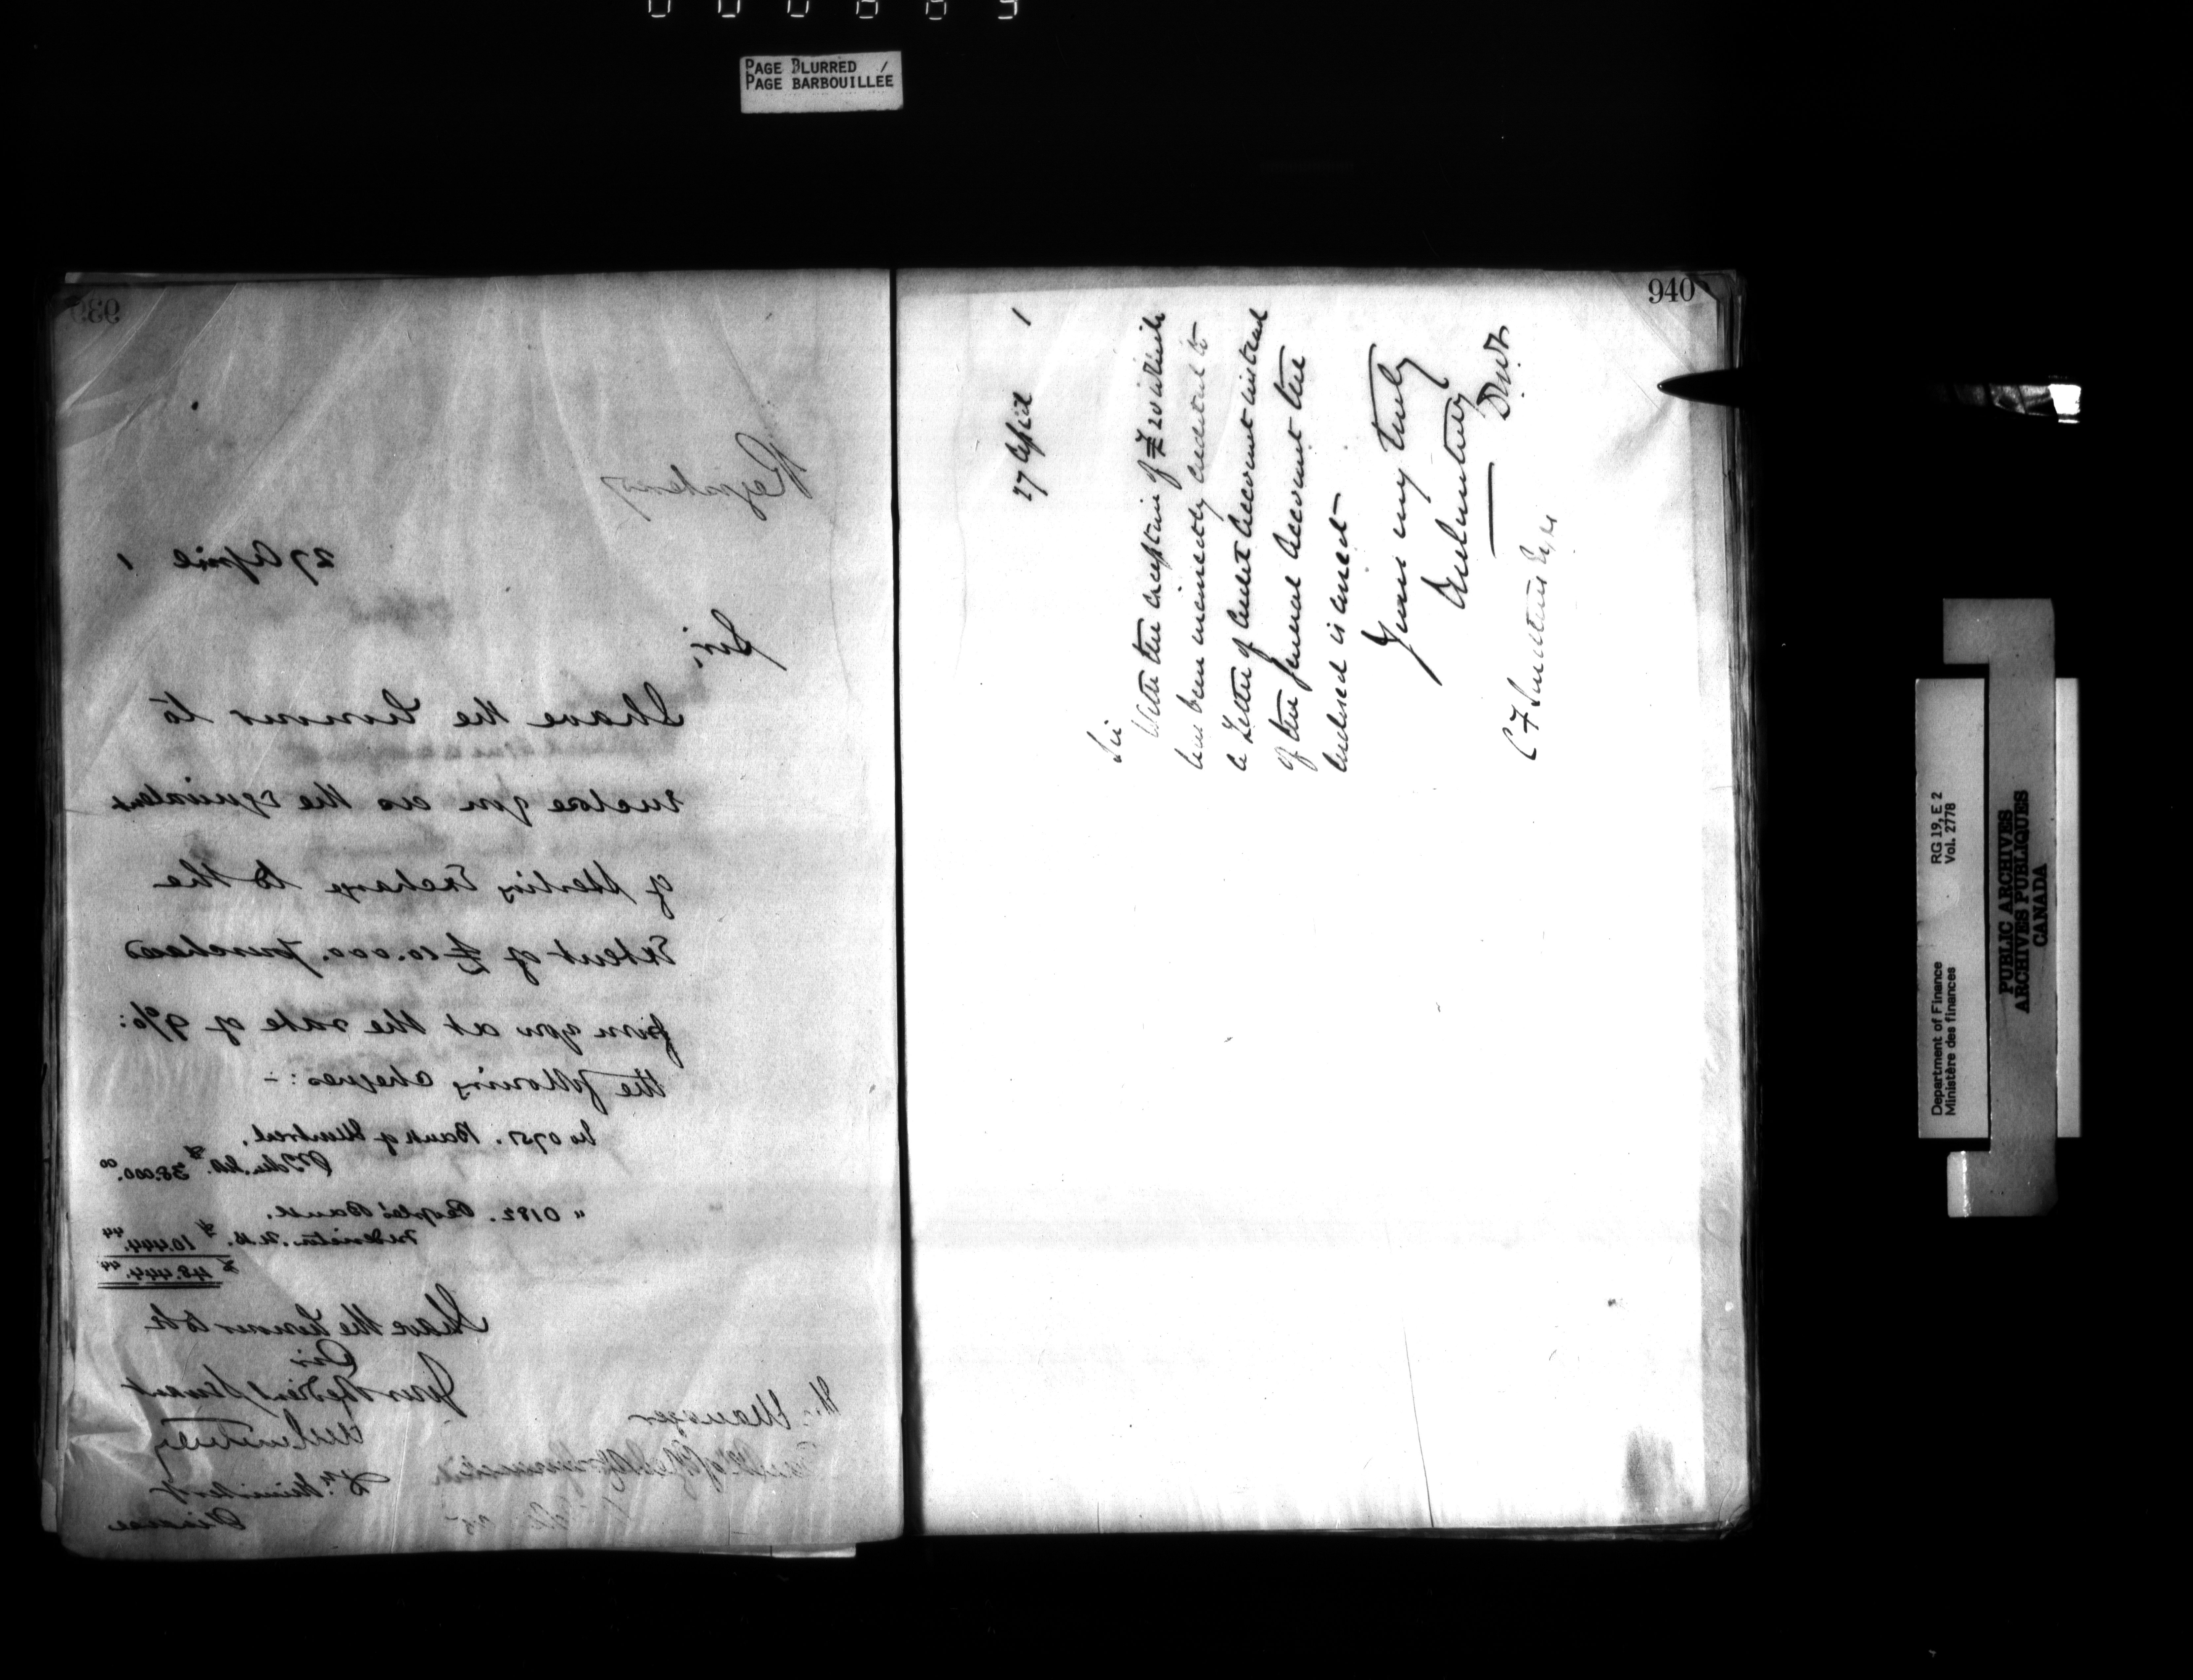 PAGE BLURRED /
PAGE BARBOUILLEE
939
Registered
27 April 1
Sir,
I have the honour to
enclose you as the equivalent
of Sterling Exchange to the
Extent of £10.000. purchased
from you at the rate of 9%:
the following cheques: -
No 0757. Bank of Montreal,
$38.000.00
" 0182. People's Bank.
Fredericton. N.B. $10.444.44
$48.444.44
I have the honour to be
Sir
Your Obedient Servant
Dy. Minister of
Finance
The Manager
940
27 April 1
Sir
With the exception of £20 which
has been incorrectly credited to
a Letter of Credit Account instead
of the General Account the
enclosed is correct
Yours very truly
C F Smithers Esq
RG 19, E 2
Vol. 2778
Department of Finance
Ministère des finances
PUBLIC ARCHIVES
ARCHIVES PUBLIQUES
CANADA